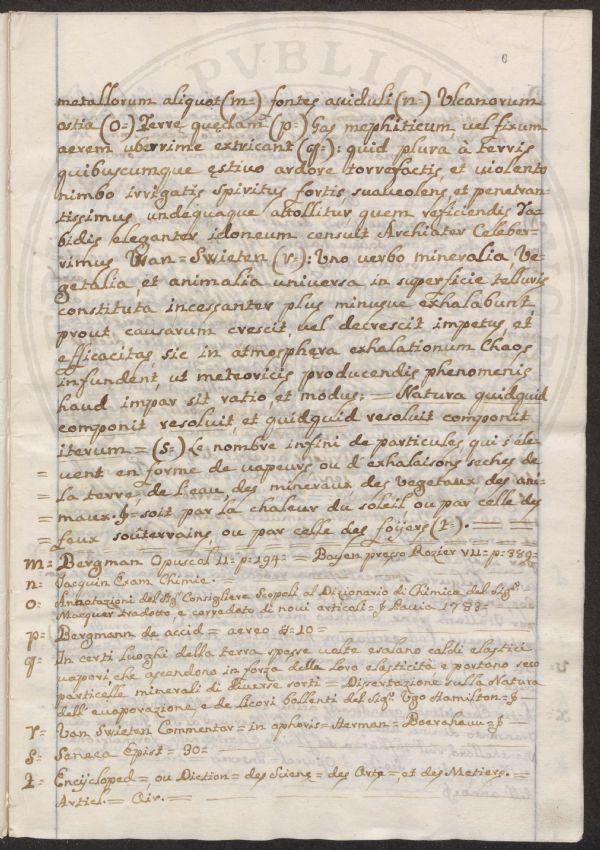 6
metallorum aliquot (m=) fontes aciduli (n=) Vlcanorum
ostia (o=) Terrę quędam (p=) Gas mephiticum, vel fixum
aerem uberrime extricant (q=): quid plura à terris
quibuscumque ęstivo ardore torrefactis, et violento
nimbo irrigatis spiritus fortis, suaveolens, et penetran-
tissimus, undequaque attollitur quem reficiendis Ta-
bidis eleganter idoneum censuit Archiater Celeber-
rimus Wan=Swieten (r=): Uno verbo mineralia, Ve-
getalia, et animalia universa in superficie telluris
constituta incessanter plus minusue exhalabunt,
prout causarum crescit, vel decrescit impetus, et
efficacitas, sic in atmosphęra exhalationum Chaos
infundent, ut meteoricis producendis phenomenis
haud impar sit ratio, et modus: = Natura quidquid
componit resoluit, et quidquid resoluit componit
iterum = (s=) Le nombre infini de particules qui s'éle-
= vent en forme de vapeurs ou d'exhalaisons seches de
= la terre, de l'eau, des mineraux, des vegetaux, des ani-
= maux, &= soit par la chaleur du soleil ou par celle des
= feux soûterrains, ou par celle des foÿers (t=). =
m= Bergman Opuscol 11= p=194= = Bayen presso Rozier VII= p=389=
n= Jacquin Exam Chimic. =
o= Annotazioni del Sigr Consigliere Scopoli al Dizionario di Chimica del Sigr
Macquer tradotto, e corredato di nuovi articoli = & Pavia 1783=
p= Bergmann de accid = aereo §=10=
q= In certi luoghi della terra spesse volte esalano caldi elastici
vapori che ascendono in forza della loro elasticità e portano seco
particelle minerali di diverse sorti = Dissertazione sulla Natura
dell'evaporazione, e de licori bollenti del Sigr Ugo Hamilton= &
r= Van Swieten Commentar= in aphoris= Herman= Boerahauu= &
s= Seneca Epist= 30=
t= Encycloped= ou Diction= des Scienc= des Arts=, et des Metiers. =
Articl.= Air. =